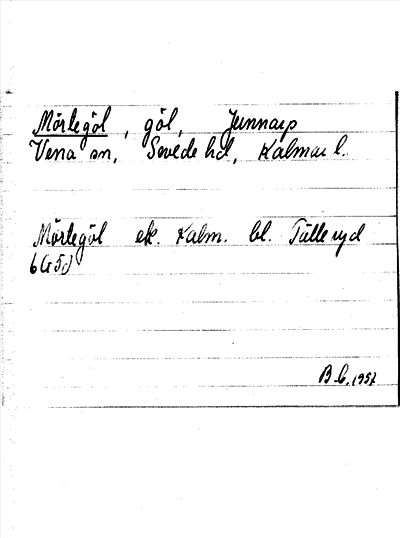 Mörlegöl, göl, Jennarp
Vena sn, Sevede hd, Kalmar l.
Mörlegöl ek. Kalm. bl. Tälleryd
6 G 5 d
B G. 1957